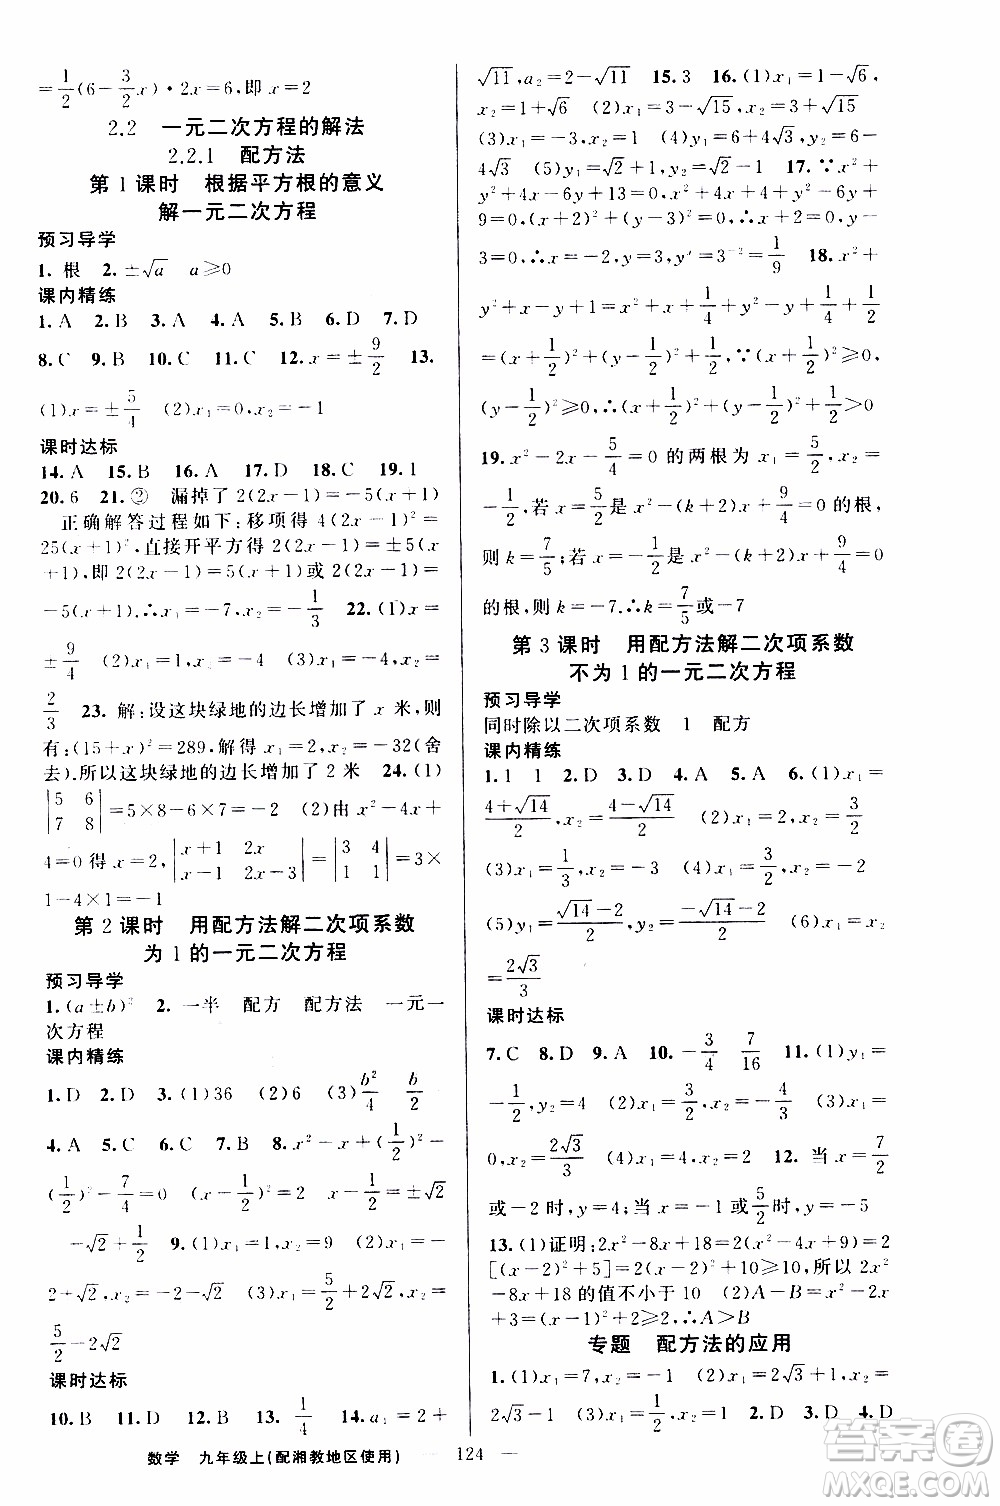 =1/2(6-3/2x)·2x=6,即 x=2
2.2 一元二次方程的解法
2.2.1 配方法
第1课时 根据平方根的意义
解一元二次方程
预习导学
1. 根 2. ±√a a≥0
课内精练
1. A 2. B 3. A 4. A 5. B 6. D 7. D
8. C 9. B 10. C 11. C 12. x=±9/2 13.
(1)x=±5/4 (2)x₁=0,x₂=-1
课时达标
14. A 15. B 16. A 17. D 18. C 19. 1
20. 6 21. ② 漏掉了 2(2x-1)=-5(x+1)
正确解答过程如下:移项得 4(2x-1)²=
25(x+1)²,直接开平方得 2(2x-1)=±5(x
+1),即 2(2x-1)=5(x+1)或 2(2x-1)=
-5(x+1).∴x₁=-7,x₂=-1/3 22. (1)x=
±9/4 (2)x₁=1,x₂=-4 (3)x₁=-4,x₂=
2/3 23. 解:设这块绿地的边长增加了 x 米,则
有:(15+x)²=289,解得 x₁=2,x₂=-32(舍
去).所以这块绿地的边长增加了 2 米 24. (1)
|5 6|
|7 8| =5×8-6×7=-2 (2)由 x²-4x+
4=0 得 x=2, |x+1 2x| = |3 4|
|x-1 2x| |1 4| =3×
1-4×1=-1
第2课时 用配方法解二次项系数
为1的一元二次方程
预习导学
1. (a±b)² 2. 一半 配方 配方法 一元一
次方程
课内精练
1. D 2. D 3. (1)36 (2)6 (3)b²/4 b/2
4. A 5. C 6. C 7. B 8. x²-x+(1/2)²-
(1/2)²-7/4=0 (x-1/2)²=2 x-1/2=±√2
-√2+1/2 9. (1)x₁=1,x₂=-3 (2)x₁=
2+√2,x₂=2-√2 (3)x₁=5/2+2√2,x₂=
5/2-2√2
课时达标
10. B 11. B 12. A 13. 1/4 14. a₁=2+
√11,a₂=2-√11 15. 3 16. (1)x₁=1-√6,
x₂=1+√6 (2)x₁=3-√15,x₂=3+√15
(3)x₁=3,x₂=-1 (4)x₁=6+4√3,x₂=6-
4√3 (5)x₁=√2,x₂=√2-1 17. ∵x²+
y²+z²-2x+4y-6z+14=x²-2x+1+y²+4y+4+z²-6z+
9=0,∴(x-1)²+(y+2)²+(z-
3=0,∴x=1,y=-2,z=3,3⁻²=1/9 18. x²+
y²+x-y+1=x²+x+1/4+y²-y+1/4+1/2
=(x+1/2)²+(y-1/2)²+1/2,∵(x+1/2)²≥0,
(y-1/2)²≥0,∴(x+1/2)²+(y-1/2)²+1/2>0
19. x²-2x-5/4=0 的两根为 x₁=5/2,x₂=
-1/2,若 x=5/2是 x²-(k+2)x+9/4=0 的根,
则 k=7/5;若 x=-1/2是 x²-(k+2)x+9/4=0
的根,则 k=-7.∴k=7/5或-7
第3课时 用配方法解二次项系数
不为1的一元二次方程
预习导学
同时除以二次项系数 1 配方
课内精练
1. 1 1 2. D 3. D 4. A 5. A 6. (1)x₁=
(4+√14)/2,x₂=(4-√14)/2 (2)x₁=1,x₂=1/2
(3)x₁=1/2,x₂=-3 (4)x₁=1,x₂=-1/3
(5)y₁=(√14-2)/2,y₂=(-√14-2)/2 (6)x₁=x₂
=2√3/3
课时达标
7. C 8. D 9. A 10. -3/4 7/16 11. (1)y₁=
-1/2,y₂=4 (2)x₁=3/2,x₂=-1/2 (3)x₁=
0,x₂=2√3/3 (4)x₁=4,x₂=2 12. 当 x=7/2
或-2 时,y=4;当 x=-1或5/2时,y=-2
13. (1)证明:2x²-8x+18=2(x²-4x+9)=2
[(x-2)²+5]=2(x-2)²+10≥10,所以2x²
-8x+18 的值不小于 10 (2)A-B=x²-2x
+3=(x-1)²+2≥2,∴A>B
专题 配方法的应用
1. (1)x₁=7,x₂=-1 (2)x₁=2√3+1,x₂=
2√3-1 (3)x₁=x₂=-√2 2. D 3. C 4. D
数学 九年级上(配湘教地区使用) — 124 —
答案圈